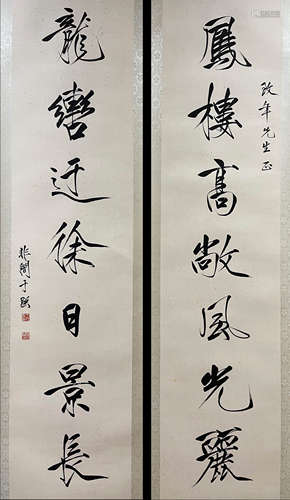 鳳樓高敞風光麗
政年先生正
龍轡迂徐日景長
非闇于照